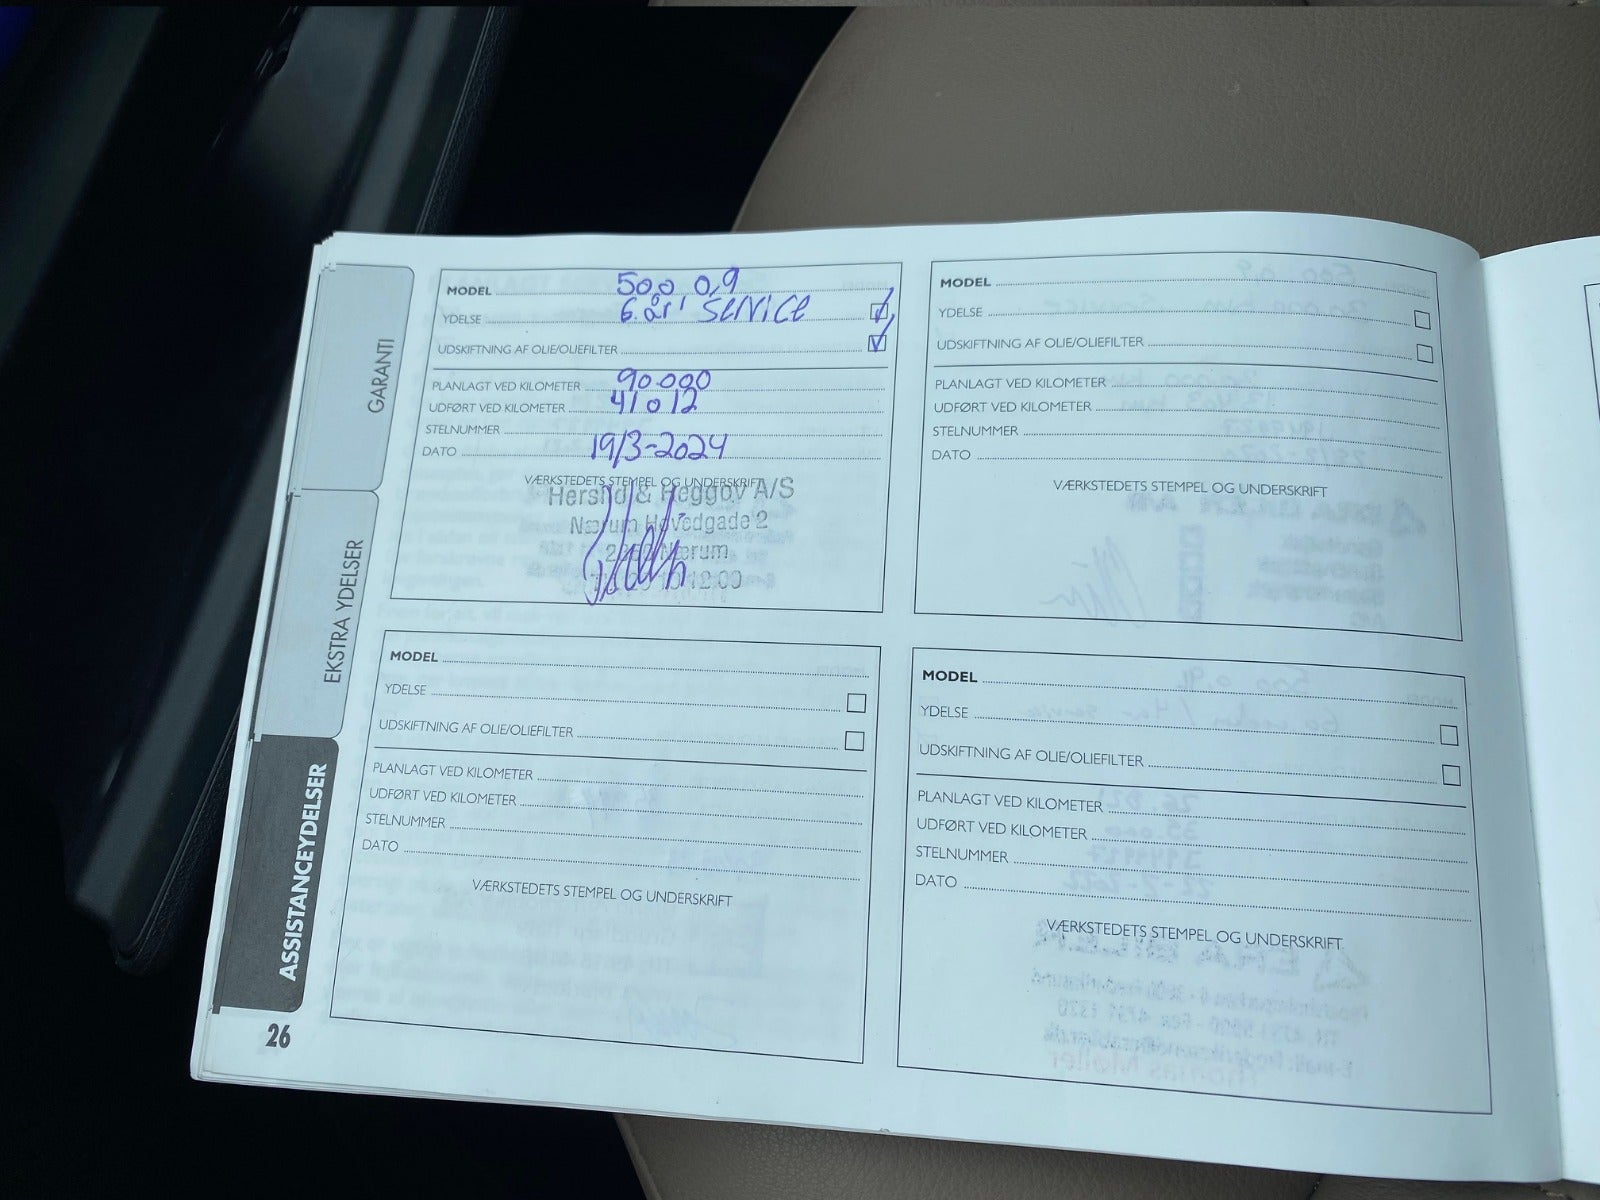 GARANTI
EKSTRA YDELSER
ASSISTANCEYDELSER
26
MODEL 500 0,9
YDELSE 6. års service
UDSKIFTNING AF OLIE/OLIEFILTER
PLANLAGT VED KILOMETER 90.000
UDFØRT VED KILOMETER 41012
STELNUMMER
DATO 19/3-2024
VÆRKSTEDETS STEMPEL OG UNDERSKRIFT
& Heggov A/S
Nærum Hovedgade 2
Nærum
MODEL
YDELSE
UDSKIFTNING AF OLIE/OLIEFILTER
PLANLAGT VED KILOMETER
UDFØRT VED KILOMETER
STELNUMMER
DATO
VÆRKSTEDETS STEMPEL OG UNDERSKRIFT
MODEL
YDELSE
UDSKIFTNING AF OLIE/OLIEFILTER
PLANLAGT VED KILOMETER
UDFØRT VED KILOMETER
STELNUMMER
DATO
VÆRKSTEDETS STEMPEL OG UNDERSKRIFT
MODEL
YDELSE
UDSKIFTNING AF OLIE/OLIEFILTER
PLANLAGT VED KILOMETER
UDFØRT VED KILOMETER
STELNUMMER
DATO
VÆRKSTEDETS STEMPEL OG UNDERSKRIFT